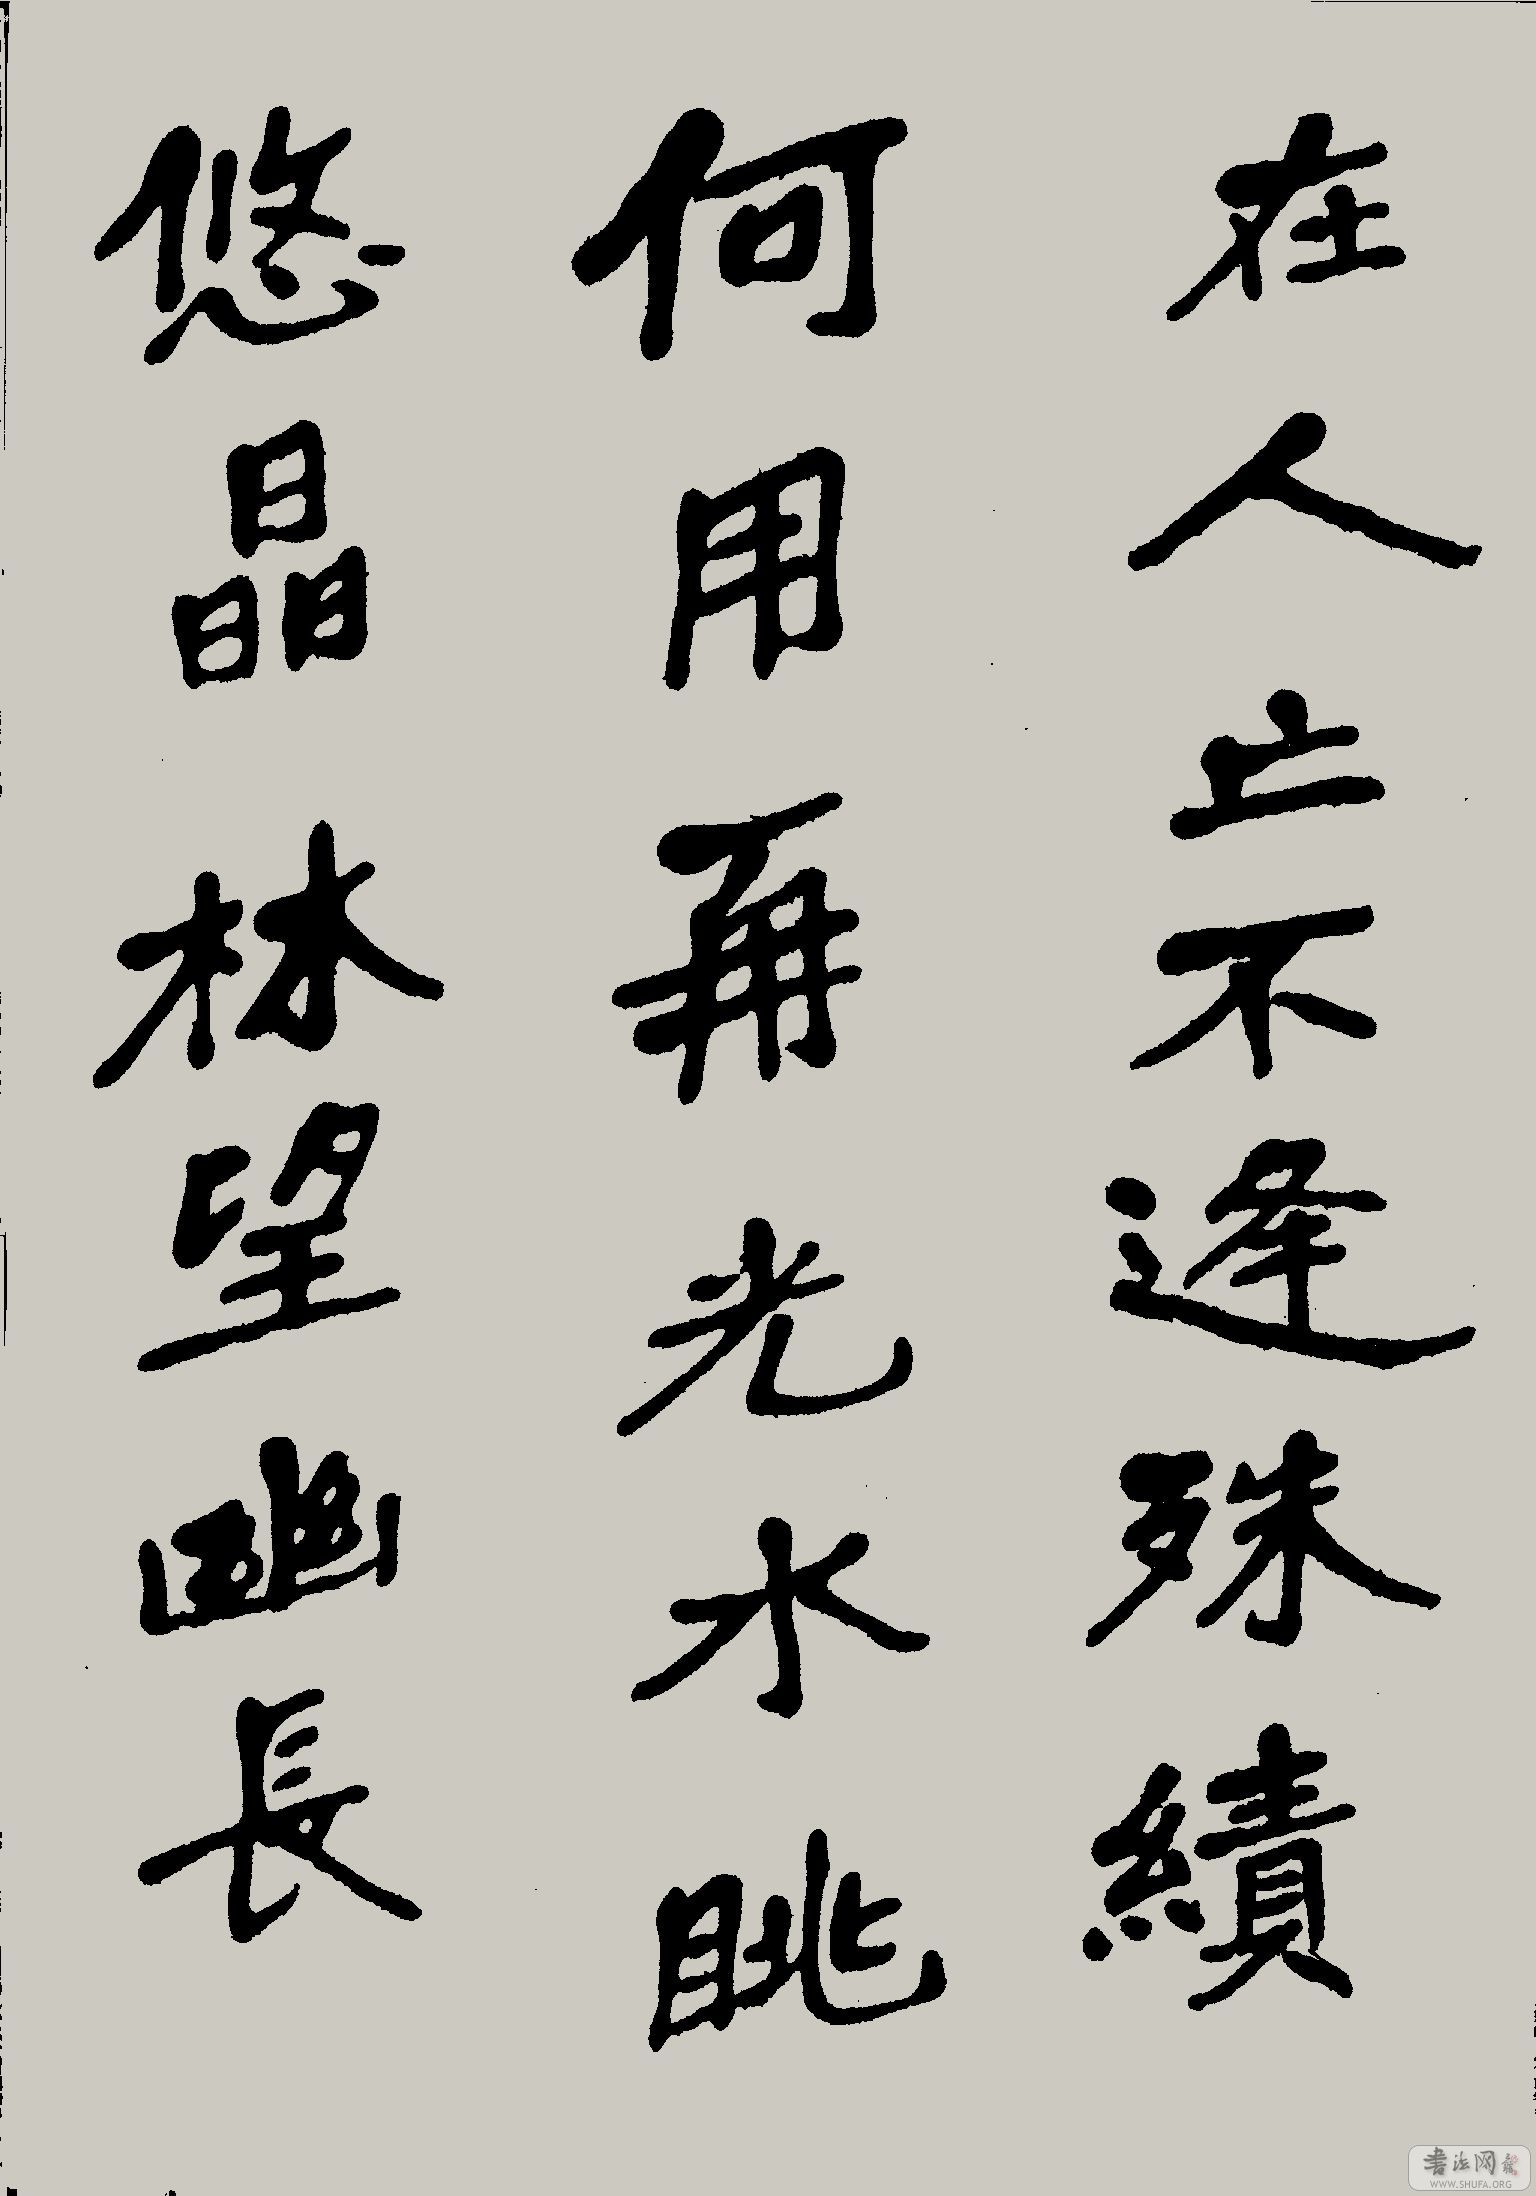 在人亡不逢殊績
何用再光水眺
悠晶林望幽長
書法网
WWW.SHUFA.ORG